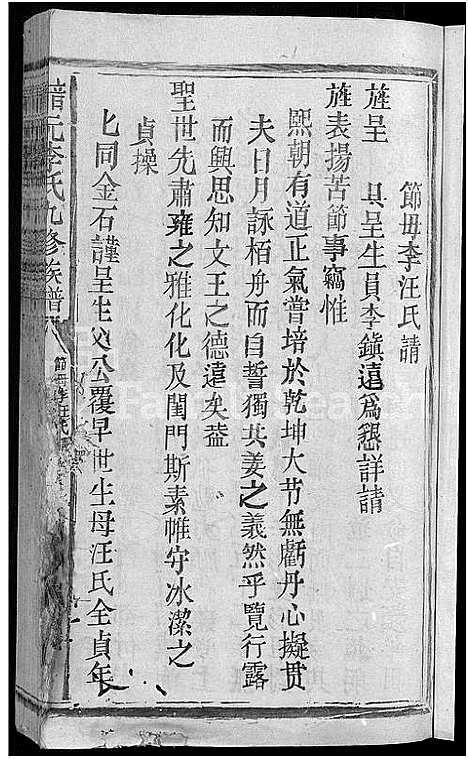 節母李汪氏請
旌呈　具呈生員李鎭遠爲懇詳請
旌表揚苦節事竊惟
熙朝有道正氣嘗培於乾坤大节無虧丹心擬贯
夫日月詠栢舟而自誓獨共姜之義然乎覽行露
而興思知文王之德遠矣葢
聖世先肅雍之雅化化及閨門斯素帷守冰潔之
貞操
匕同金石謹呈生父公覆早世生母汪氏全貞年
元李氏九修族譜
節母李汪氏
FamilySearch